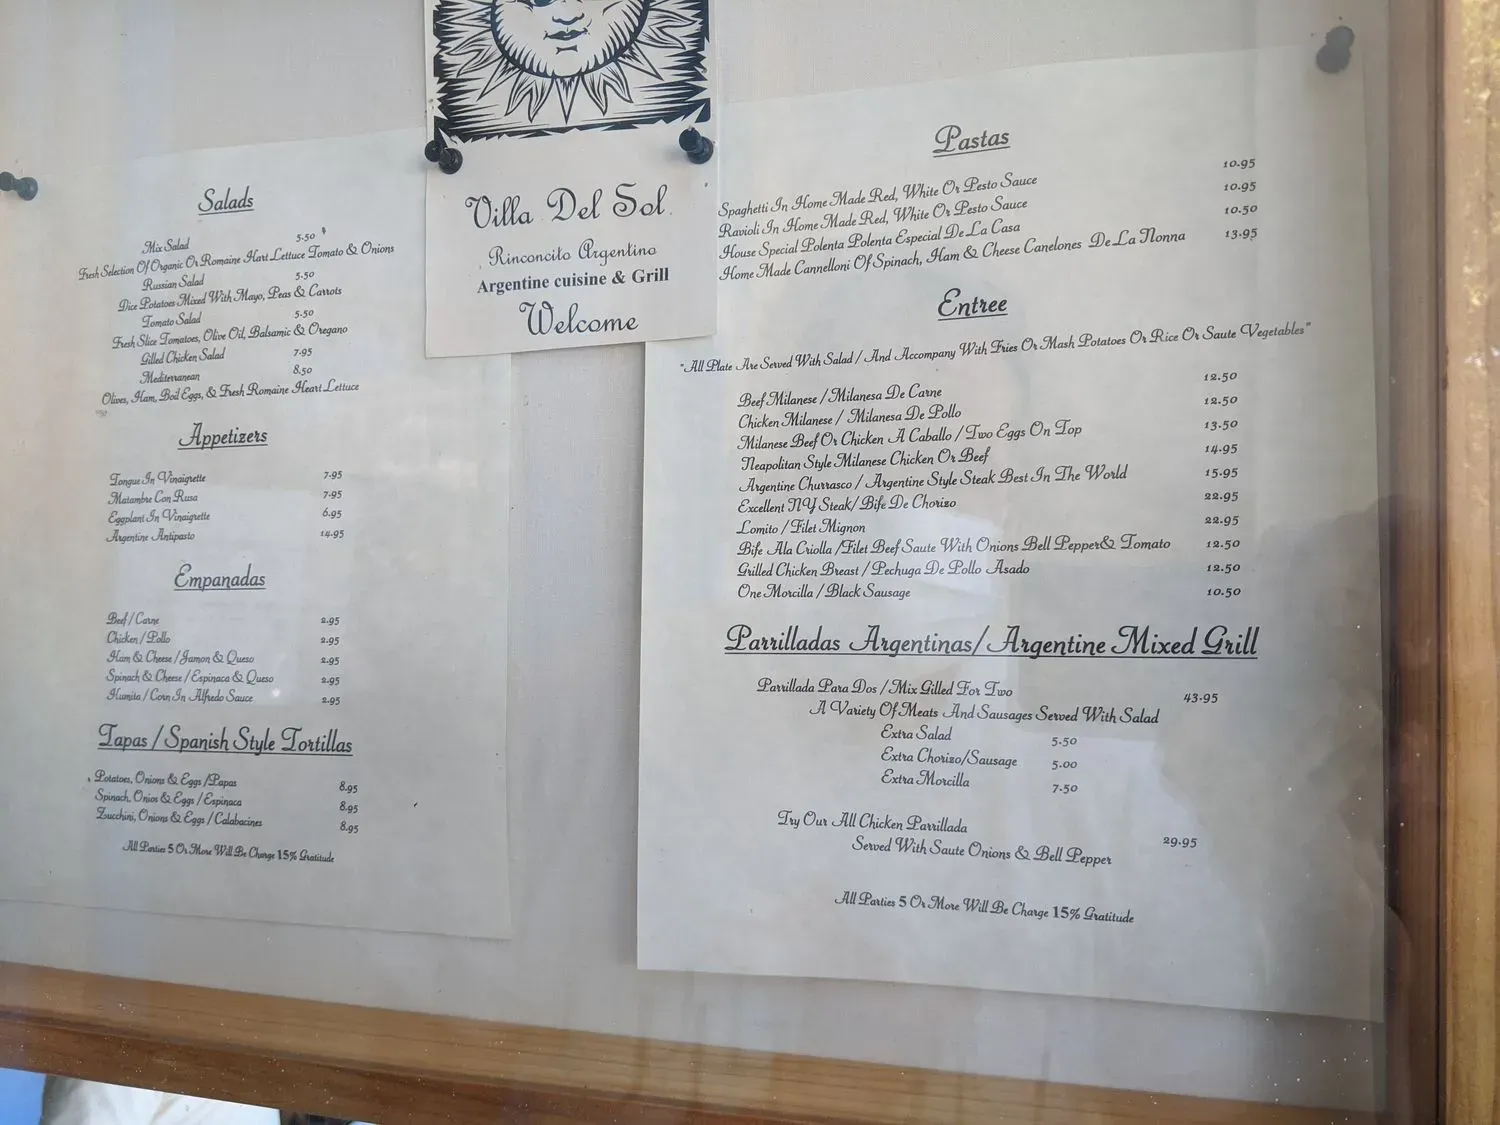 Villa Del Sol
Rinconcito Argentino
Argentine cuisine & Grill
Welcome
Salads
Mix Salad 5.50
Fresh Selection Of Organic Or Romaine Hart Lettuce Tomato & Onions
Russian Salad 5.50
Dice Potatoes Mixed With Mayo, Peas & Carrots
Tomato Salad 5.50
Fresh Slice Tomatoes, Olive Oil, Balsamic & Oregano
Gilled Chicken Salad 7.95
Mediterranean 8.50
Olives, Ham, Boil Eggs, & Fresh Romaine Heart Lettuce
Appetizers
Tongue In Vinaigrette 7.95
Matambre Con Rusa 7.95
Eggplant In Vinaigrette 6.95
Argentine Antipasto 14.95
Empanadas
Beef / Carne 2.95
Chicken / Pollo 2.95
Ham & Cheese / Jamon & Queso 2.95
Spinach & Cheese / Espinaca & Queso 2.95
Humita / Corn In Alfredo Sauce 2.95
Tapas / Spanish Style Tortillas
Potatoes, Onions & Eggs / Papas 8.95
Spinach, Onios & Eggs / Espinaca 8.95
Zucchini, Onions & Eggs / Calabacines 8.95
All Parties 5 Or More Will Be Charge 15% Gratitude
Pastas
Spaghetti In Home Made Red, White Or Pesto Sauce 10.95
Ravioli In Home Made Red, White Or Pesto Sauce 10.95
House Special Polenta Polenta Especial De La Casa 10.50
Home Made Cannelloni Of Spinach, Ham & Cheese Canelones De La Nonna 13.95
Entree
"All Plate Are Served With Salad / And Accompany With Fries Or Mash Potatoes Or Rice Or Saute Vegetables"
Beef Milanese / Milanesa De Carne 12.50
Chicken Milanese / Milanesa De Pollo 12.50
Milanese Beef Or Chicken A Caballo / Two Eggs On Top 13.50
Neapolitan Style Milanese Chicken Or Beef 14.95
Argentine Churrasco / Argentine Style Steak Best In The World 15.95
Excellent NY Steak / Bife De Chorizo 22.95
Lomito / Filet Mignon 22.95
Bife Ala Criolla / Filet Beef Saute With Onions Bell Pepper& Tomato 12.50
Grilled Chicken Breast / Pechuga De Pollo Asado 12.50
One Morcilla / Black Sausage 10.50
Parrilladas Argentinas/ Argentine Mixed Grill
Parrillada Para Dos / Mix Gilled For Two 43.95
A Variety Of Meats And Sausages Served With Salad
Extra Salad 5.50
Extra Chorizo/Sausage 5.00
Extra Morcilla 7.50
Try Our All Chicken Parrillada 29.95
Served With Saute Onions & Bell Pepper
All Parties 5 Or More Will Be Charge 15% Gratitude